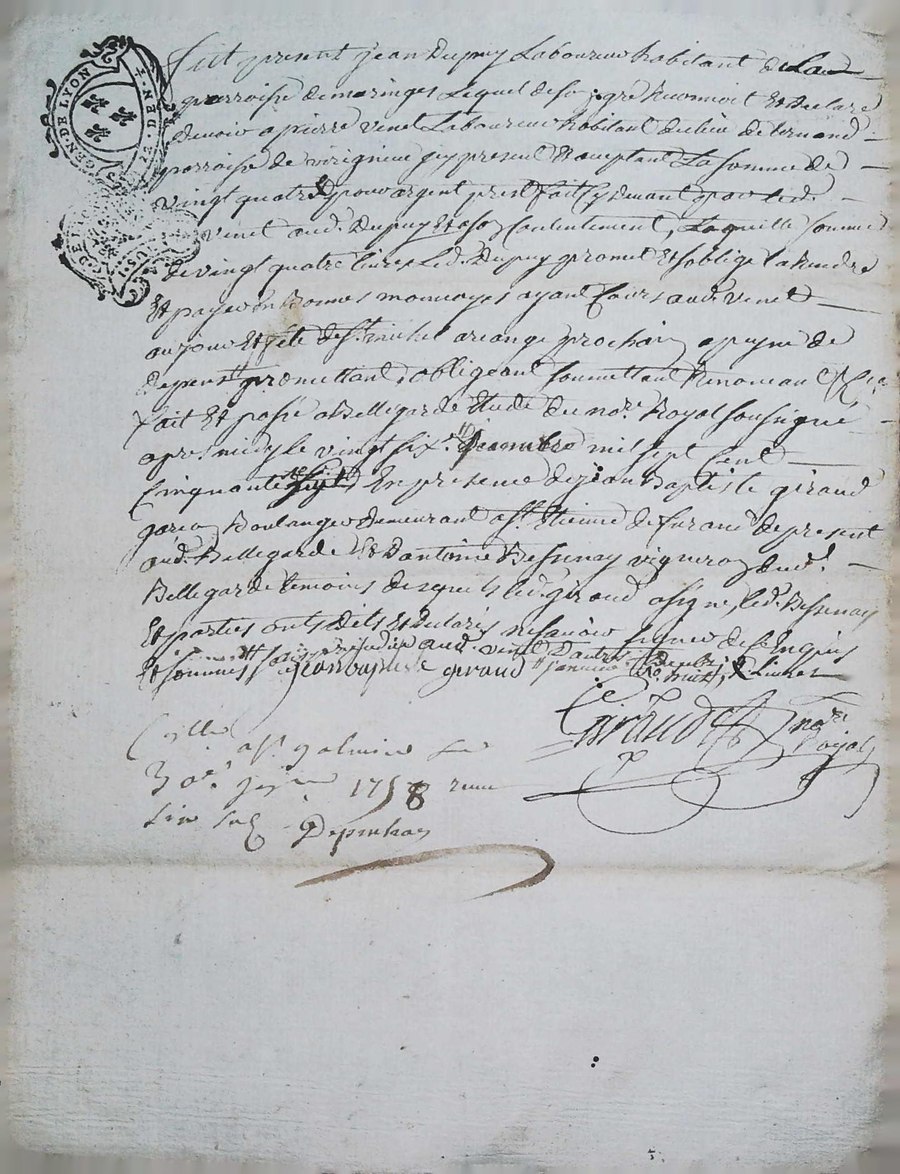 GEN. DE LYON
fut present jean Dupuy Laboureur habitant de La
parroisse de maringes Lequel de son gré Reconnoit Et declare
devoir a pierre venet Laboureur habitant du lieu de
parroisse de virignieu icy present acceptant La somme de
vingt quatre pour argent prest fait cy devant par led.
venet aud. Dupuy Et a son Contentement, Laquelle somme
de vingt quatre livres Led. Dupuy promet Et soblige La Rendre
Et payer en Bonnes monnoyes ayant Cours aud. venet
au jour Et fête de st. michel arcange prochain a peyne de
depens promettant obligeant soumettant Renonceant &c.
fait Et passé a Bellegarde Etude du nore. Royal soussigné
apres midy le vingt six decembre mil sept Cent
Cinquante sept En presence de jean Baptiste giraud
garçon Boulanger demeurant a st. Etienne de furand de present
aud. Bellegarde Et D'antoine Bessenay vigneron dud.
Bellegarde temoins desquels led. giraud a signé, led. Bessenay
Et parties onts dits Et declarés ne sçavoir signer de ce Enquis
Et sommés sans préjudice aud. venet D'autres
jean baptiste giraud
nore. Royal
a st. galmier le
30e. 1758